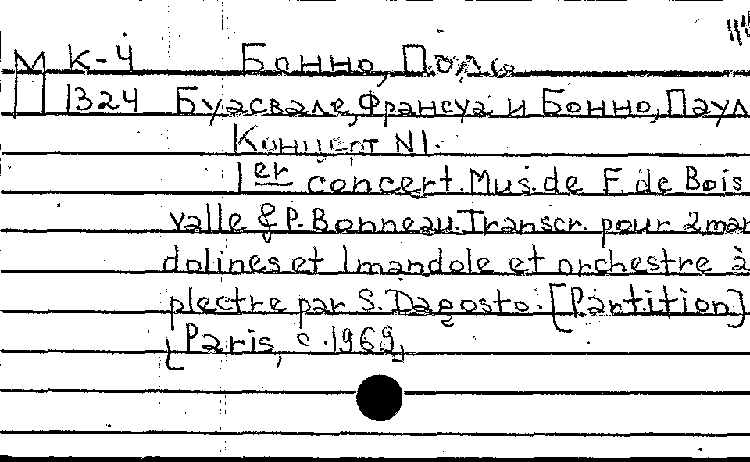 М К-4 Бонно, Поль
П 1324 Буасвале, Франсуа и Бонно, Паул
Концерт N1.
1er concert. Mus. de F. de Bois
valle & P. Bonneau. Transcr. pour 2 man
dolines et 1 mandole et orchestre à
plectre par S. Dagosto. [Partition]
[Paris, c. 1969]